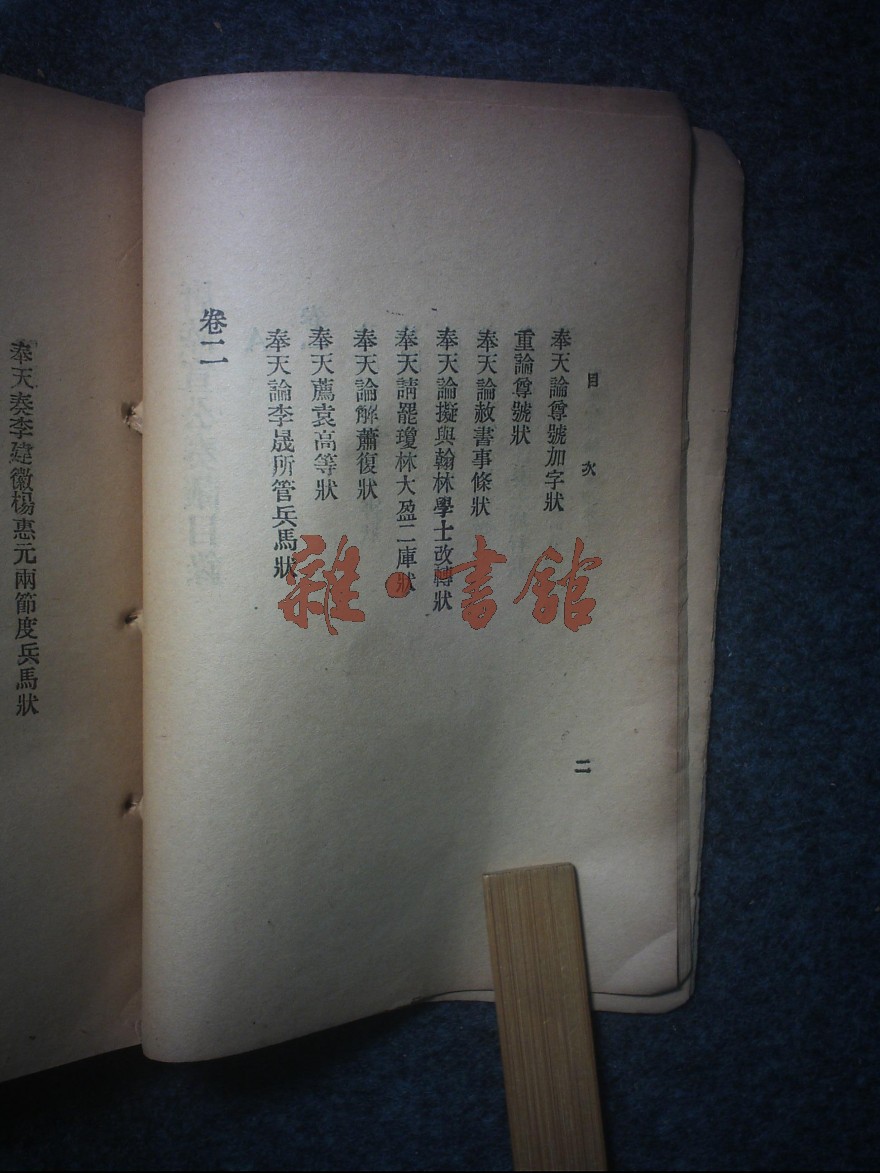 目次
二
奉天論尊號加字狀
重論尊號狀
奉天論赦書事條狀
奉天論擬與翰林學士改轉狀
奉天請罷瓊林大盈二庫狀
奉天論解蕭復狀
奉天薦袁高等狀
奉天論李晟所管兵馬狀
卷二
奉天奏李建徽楊惠元兩節度兵馬狀
雜·書館